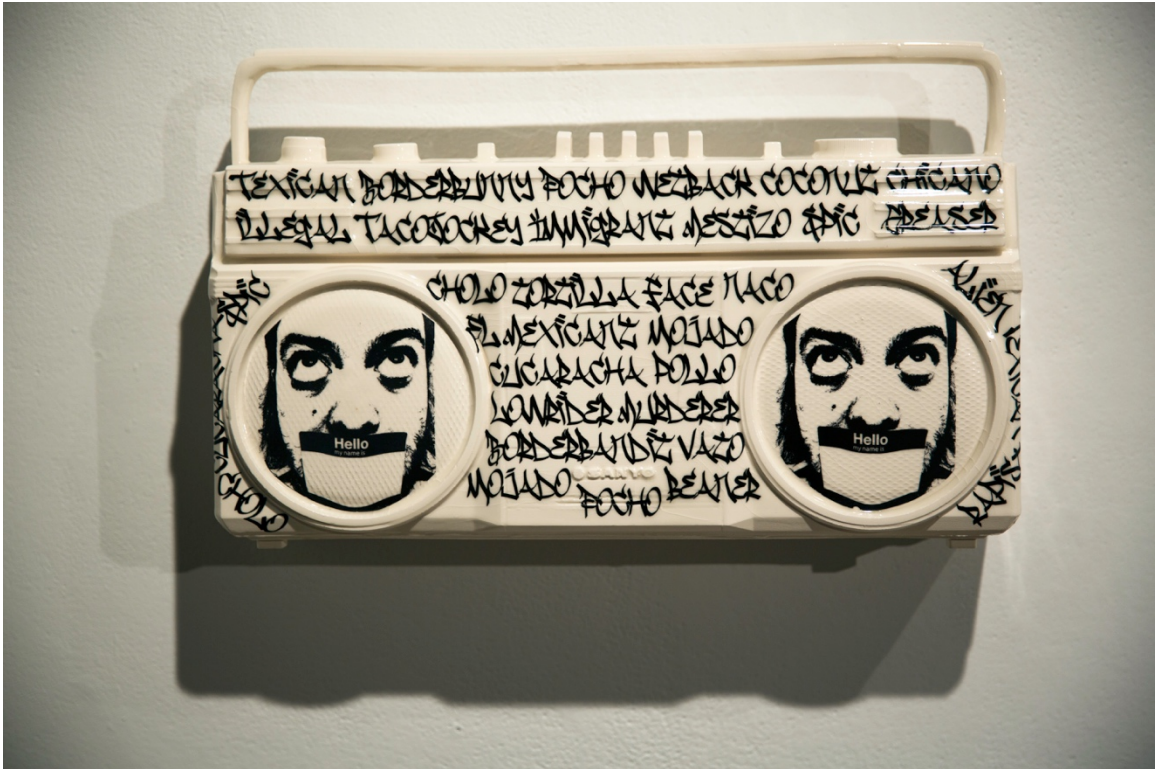 TEXICAN BORDERBUNNY POCHO WETBACK COCONUT CHICANO
ILLEGAL TACOJOCKEY IMMIGRANT MESTIZO $PIC GREASER
$PIC
CHOLO TORTILLA FACE NACO
ALIEN
EL MEXICANT MOJADO
CUCARACHA POLLO
LOWRIDER MURDERER
BORDERBANDIT VATO
MOJADO POCHO BEANER
CHOLO
SANYO
Hello
my name is
Hello
my name is